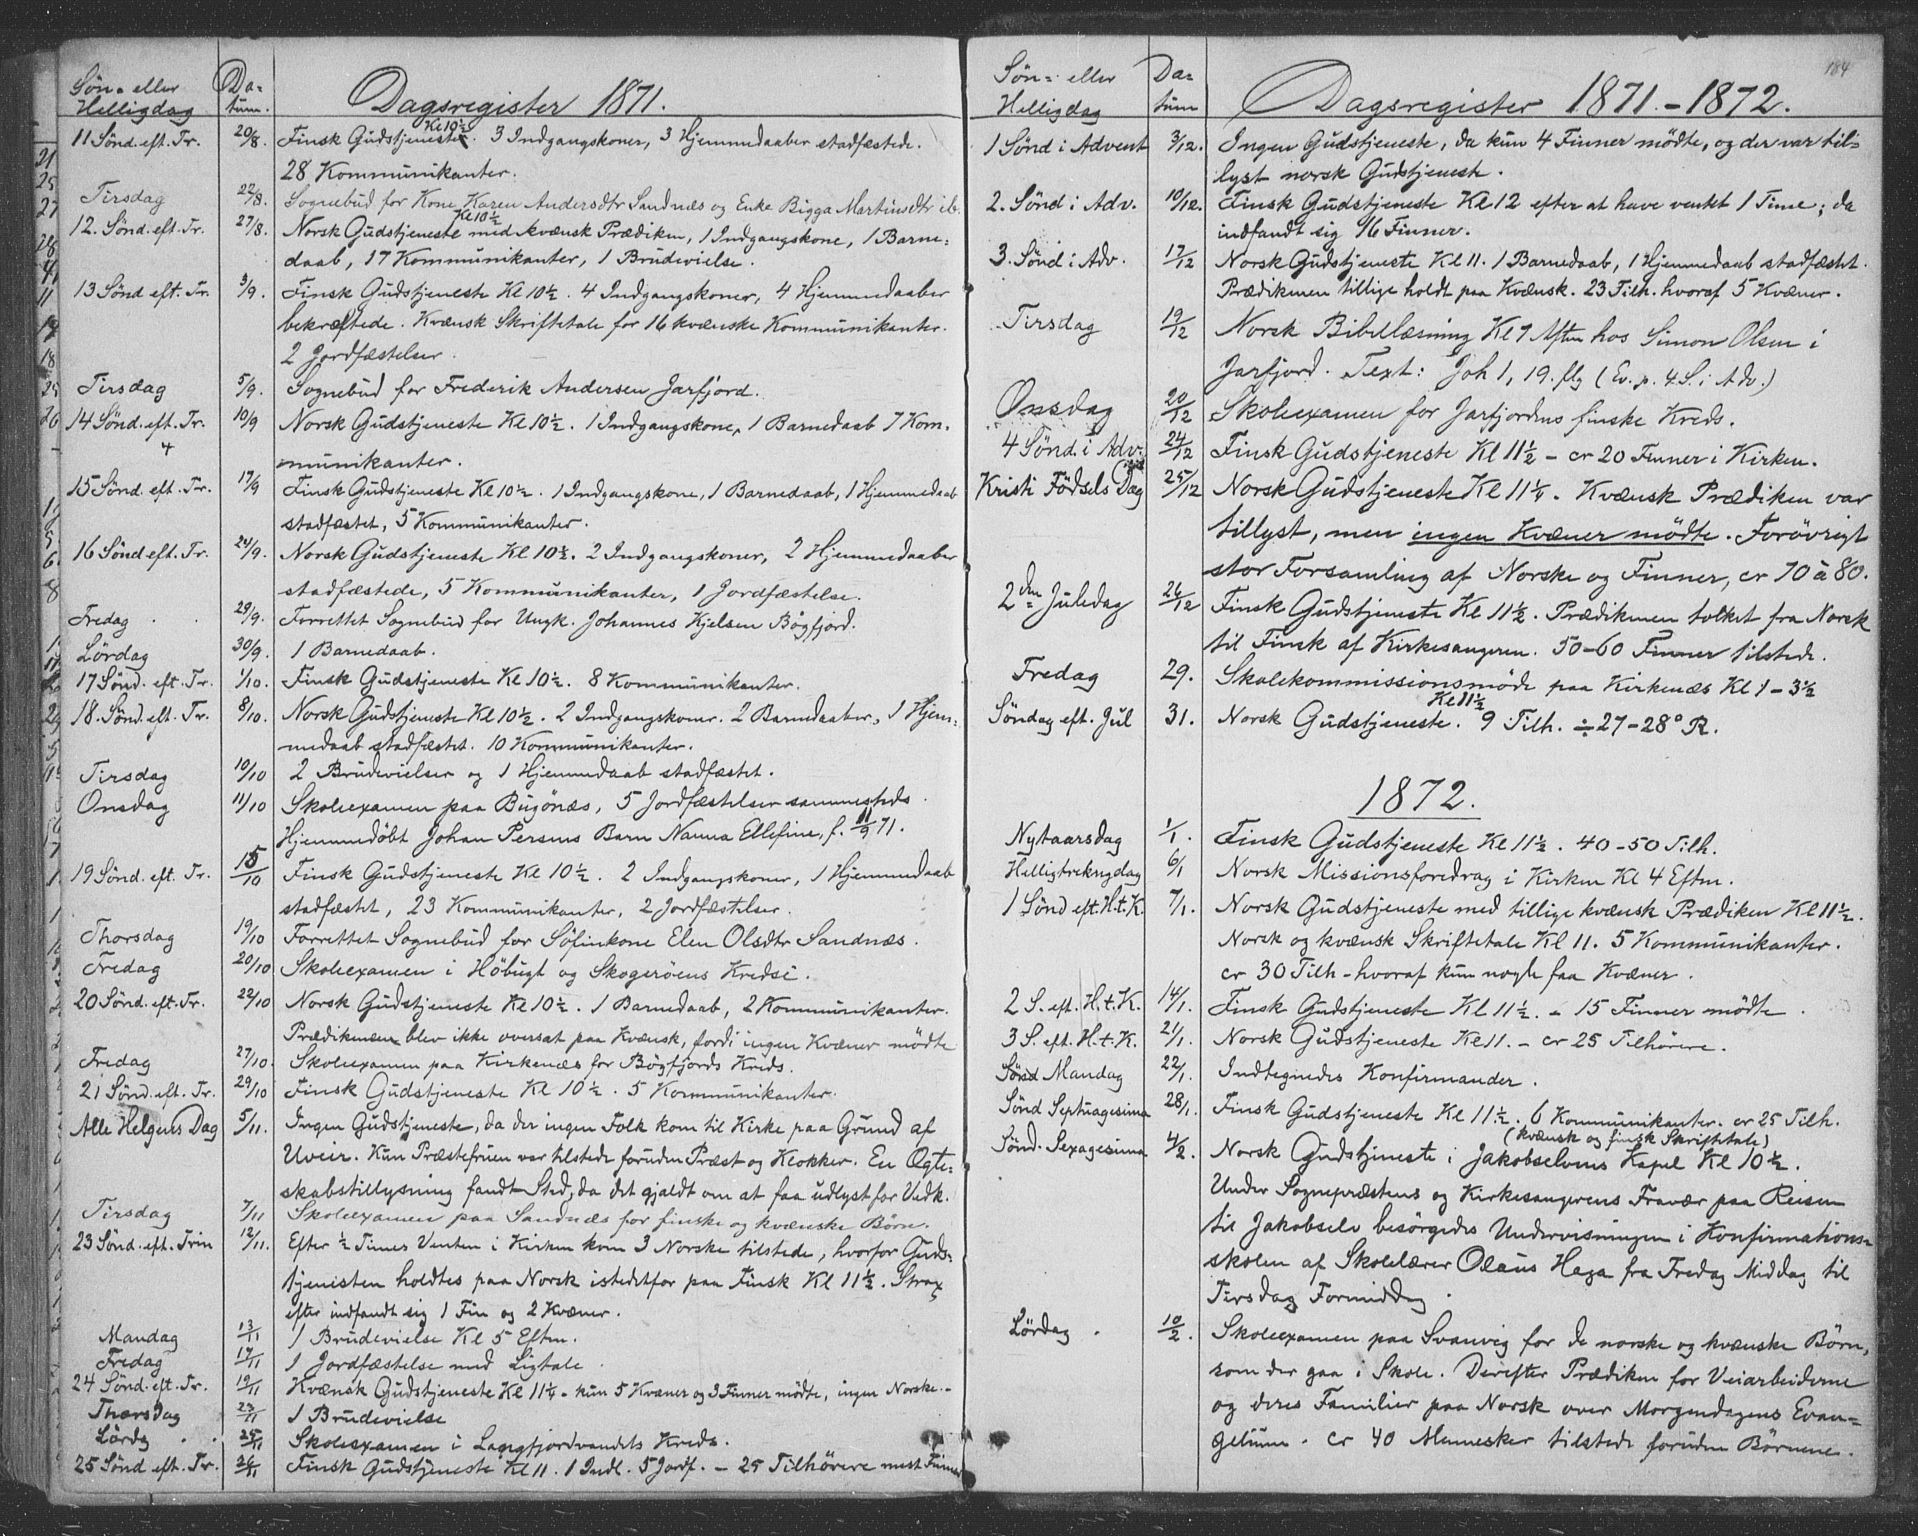 Søn- eller Helligdag
Da-tum.
Dagsregister 1871.
11 Sønd. eft. Tr. 20/8. Finsk Gudstjeneste Kl 10½. 3 Indgangskoner, 3 Hjemmedaaber stadfæstede.
28 Kommunikanter.
Tirsdag 22/8. Sognebud for Kone Karen Andersdtr Sandnæs og Enke Bigga Martinsdtr ib.
12. Sønd. eft. Tr. 27/8. Norsk Gudstjeneste Kl 10½ med kvænsk Prædiken, 1 Indgangskone, 1 Barne-
daab, 17 Kommunikanter, 1 Brudevielse.
13 Sønd eft. Tr. 3/9. Finsk Gudstjeneste Kl 10½. 4 Indgangskoner, 4 Hjemmedaaber
bekræftede. Kvænsk Skriftetale for 16 kvænske Kommunikanter.
2 Jordfæstelser.
Tirsdag 5/9. Sognebud for Frederik Andersen Jarfjord.
14 Sønd. eft. Tr. 10/9 Norsk Gudstjeneste Kl 10½. 1 Indgangskone, 1 Barnedaab 7 Kom-
munikanter.
15 Sønd. eft. Tr. 17/9 Finsk Gudstjeneste Kl 10½. 1 Indgangskone, 1 Barnedaab, 1 Hjemmedaab
stadfæstet, 5 Kommunikanter.
16 Sønd eft. Tr. 24/9. Norsk Gudstjeneste Kl 10½. 2 Indgangskoner, 2 Hjemmedaaber
stadfæstede, 5 Kommunikanter, 1 Jordfæstelse.
Fredag 29/9. Forrettet Sognebud for Ungk. Johannes Kjelsen Bøgfjord.
Lørdag 30/9. 1 Barnedaab.
17 Sønd. eft. Tr. 1/10. Finsk Gudstjeneste Kl 10½. 8 Kommunikanter.
18. Sønd eft. Tr. 8/10. Norsk Gudstjeneste Kl 10½. 2 Indgangskoner. 2 Barnedaaber, 1 Hjem-
medaab stadfæstet. 10 Kommunikanter.
Tirsdag 10/10 2 Brudevielser og 1 Hjemmedaab stadfæstet.
Onsdag 11/10 Skoleexamen paa Bugönæs, 5 Jordfæstelser sammesteds.
Hjemmedøbt Johan Persens Barn Nanna Ellefine, f. 11/9 71.
19 Sønd. eft. Tr. 15/10 Finsk Gudstjeneste Kl 10½. 2 Indgangskoner, 1 Hjemmedaab
stadfæstet, 23 Kommunikanter, 2 Jordfæstelser.
Thorsdag 19/10 Forrettet Sognebud for Søfinkone Elen Olsdtr Sandnæs.
Fredag 20/10 Skoleexamen i Høbugt og Skogerøens Kredse.
20 Sønd. eft. Tr. 22/10 Norsk Gudstjeneste Kl 10½. 1 Barnedaab, 2 Kommunikanter.
Prædikenen blev ikke oversat paa Kvænsk, fordi ingen Kvæner mødte
Fredag 27/10. Skoleexamen paa Kirkenæs for Bøgfjords Kreds.
21 Sønd. eft. Tr. 29/10 Finsk Gudstjeneste Kl 10½. 5 Kommunikanter.
Alle Helgens Dag 5/11. Ingen Gudstjeneste, da der ingen Folk kom til Kirke paa Grund af
Uveir. Kun Præstefruen var tilstede foruden Præst og Klokker. En Ægte-
skabstillysning fandt Sted, da det gjaldt om at faa udlyst for Vedk.
Tirsdag 7/11 Skoleexamen paa Sandnæs for finske og kvænske Børn.
23 Sønd. eft. Trin 12/11. Efter ½ Times Venten i Kirken kom 3 Norske tilstede, hvorfor Guds-
tjenesten holdtes paa Norsk istedetfor paa Finsk Kl 11½. Strax
efter indfandt sig 1 Fin og 2 Kvæner.
Mandag 13/11 1 Brudevielse Kl 5 Eftm.
Fredag 17/11 1 Jordfæstelse med Ligtale.
24 Sønd. eft. Tr. 19/11 Kvænsk Gudstjeneste Kl 11¼ - kun 5 Kvæner og 3 Finner mødte, ingen Norske.-
Thorsdag 23/11 1 Brudevielse
Lørdg 25/11 Skoleexamen i Langfjordvandets Kreds.
25 Sønd eft. Tr. 26/11 Finsk Gudstjeneste Kl 11. 1 Indl. 5 Jordf. - 25 Tilhørere mest Finner
184
Søn- eller Helligdag
Da-tum
Dagsregister 1871.-1872.
1 Sønd i Advent 3/12. Ingen Gudstjeneste, da kun 4 Finner mødte, og der var til-
lyst norsk Gudstjeneste.
2. Sønd i Adv. 10/12. Finsk Gudstjeneste Kl 12 efter at have ventet 1 Time; da
indfandt sig 16 Finner.
3. Sønd i Adv. 17/12 Norsk Gudstjeneste Kl 11. 1 Barnedaab, 1 Hjemmedaab stadfæstet.
Prædikenen tillige holdt paa Kvænsk. 23 Tilh. hvoraf 5 Kvæner.
Tirsdag 19/12 Norsk Bibellæsning Kl 7 Aften hos Simon Olsen i
Jarfjord. Text: Joh 1, 19. flg (Ev. p. 4. S. i Adv.)
Onsdag 20/12 Skoleexamen for Jarfjordens finske Kreds.
4 Sønd. i Adv. 24/12 Finsk Gudstjeneste Kl 11½ - cr 20 Finner i Kirken.
Kristi Fødsels Dag 25/12 Norsk Gudstjeneste Kl 11¼. Kvænsk Prædiken var
tillyst, men ingen Kvæner mødte. Forøvrigt
stor Forsamling af Norske og Finner, cr 70 à 80.
2den Juledag 26/12 Finsk Gudstjeneste Kl 11½. Prædikenen tolket fra Norsk
til Finsk af Kirkesangeren. 50-60 Finner tilstede.
Fredag 29. Skolekommissionsmøde paa Kirkenæs Kl 1-3½
Søndag eft. Jul 31. Norsk Gudstjeneste Kl 11½. 9 Tilh. ÷27-28° R.
1872.
Nytaarsdag 1/1. Finsk Gudstjeneste Kl 11½. 40-50 Tilh.
Helligtrekngdag 6/1 Norsk Missionsforedrag i Kirken Kl 4 Eftm.
1 Sønd eft. H.t.K. 7/1. Norsk Gudstjeneste med tillige kvænsk Prædiken Kl 11½.
Norsk og kvænsk Skriftetale Kl 11. 5 Kommunikanter.
cr 30 Tilh - hvoraf kun nogle faa Kvæner.
2 S. eft. H.t.K. 14/1. Finsk Gudstjeneste Kl 11½. - 15 Finner mødte.
3 S. eft. H.t.K. 21/1. Norsk Gudstjeneste Kl 11. - cr 25 Tilhørere.
Sønd Mandag 22/1. Indtegnedes Konfirmander.
Sønd Septuagesima 28/1. Finsk Gudstjeneste Kl 11½. 6 Kommunikanter. cr 25 Tilh.
(kvænsk og finsk Skriftetale)
Sønd. Sexagesima 4/2. Norsk Gudstjeneste i Jakobselvens Kapel Kl 10½.
Under Sognepræstens og Kirkesangerens Fravær paa Reisen
til Jakobselv besørgedes Undervisningen i Konfirmations-
skolen af Skolelærer Olaus Hega fra Fredag Middag til
Tirsdag Formiddag.
Lørdag. 10/2. Skoleexamen paa Svanvig for de norske og kvænske Børn,
som der gaa i Skole. Derefter Prædiken for Veiarbeiderne
og deres Familier paa Norsk over Morgendagens Evan-
gelium. cr 40 Mennesker tilstede foruden Børnene.